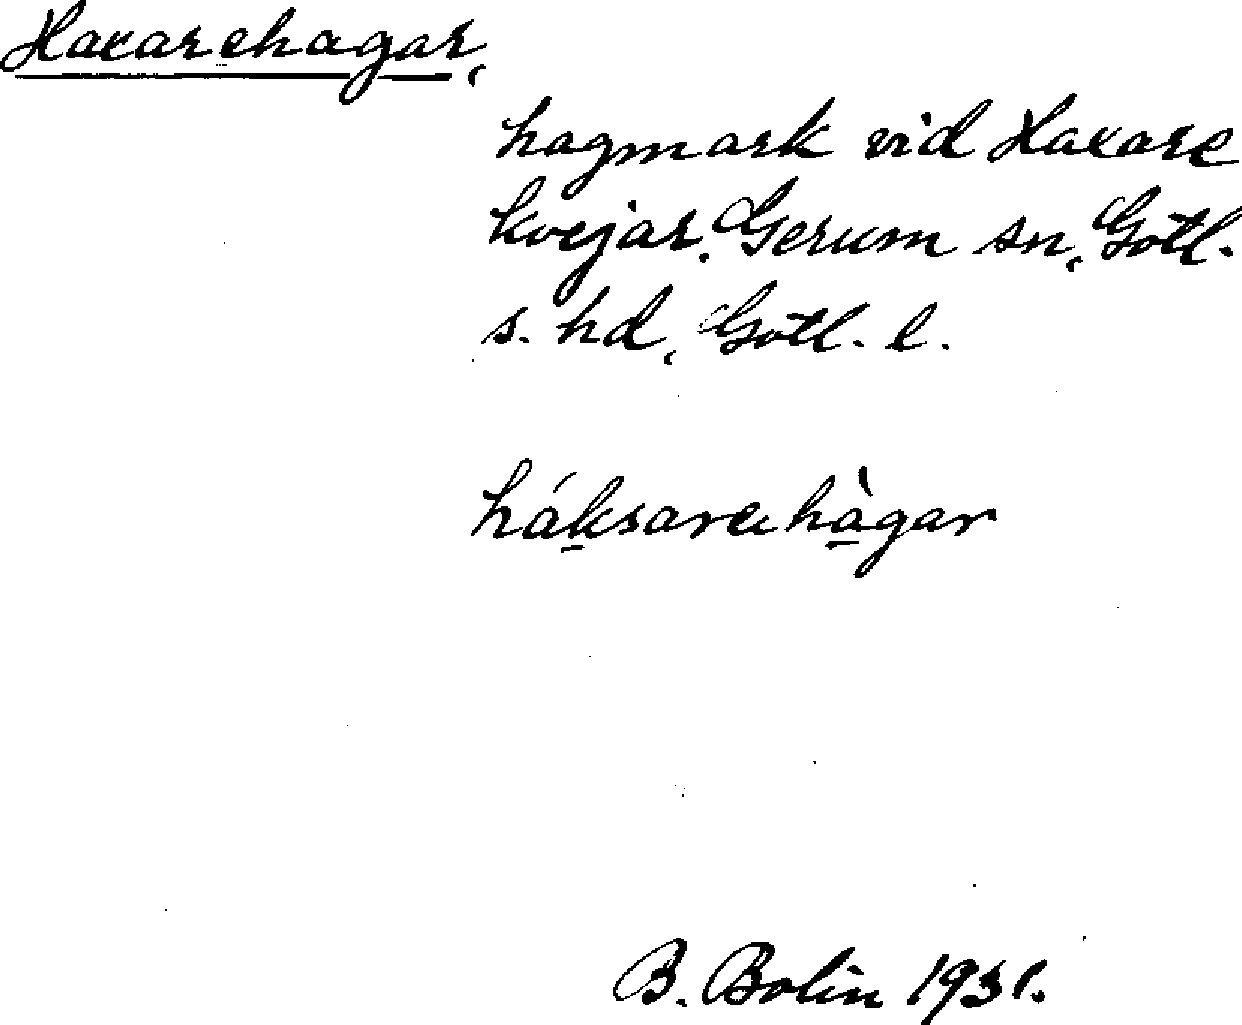 Haxarehagar,
hagmark vid Haxare
kvejar. Gerum sn, Gotl.
s. hd, Gotl. l.
háksarehàgar
B. Bolin 1931.